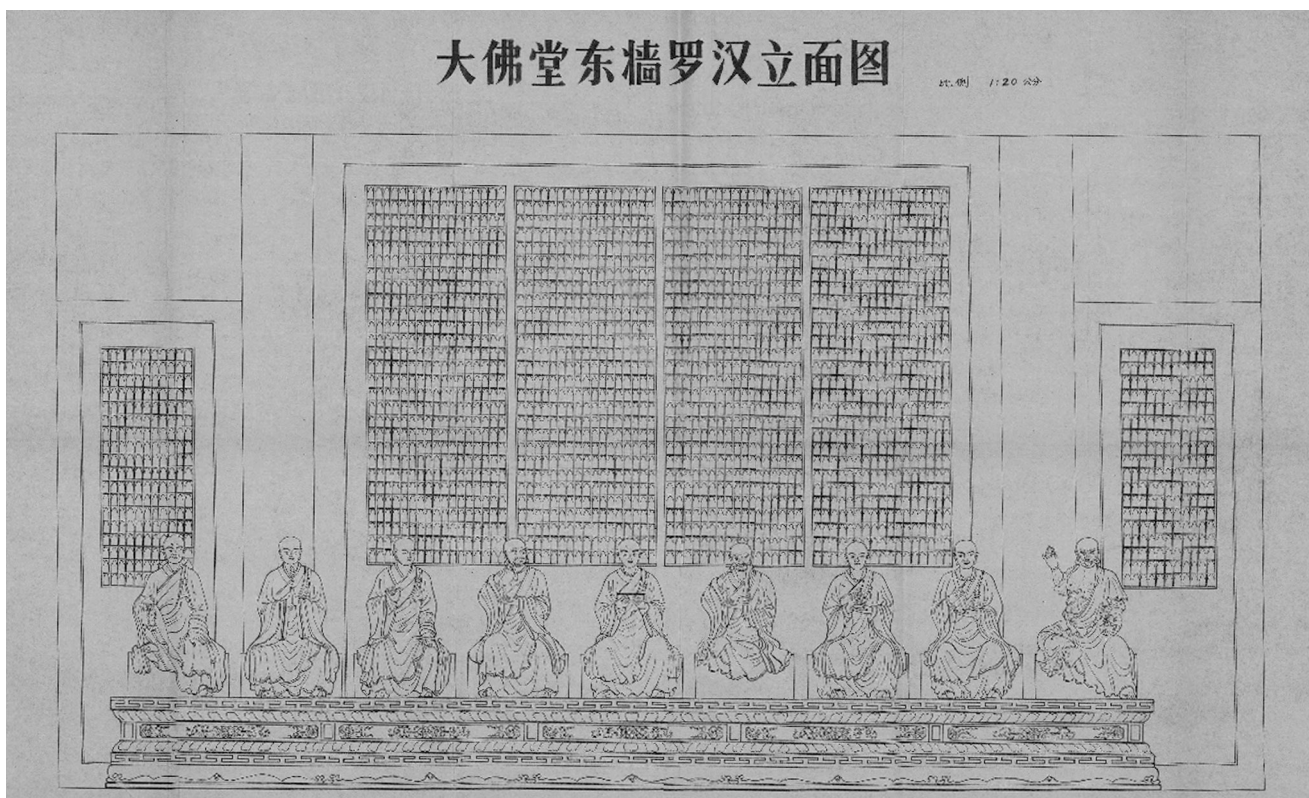 大佛堂东墙罗汉立面图
比例 1:20 公分